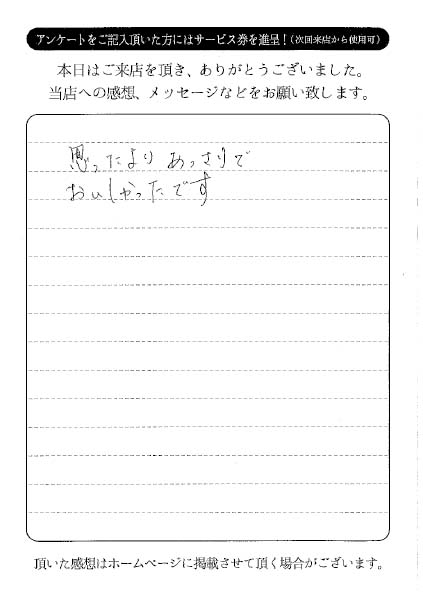 アンケートをご記入頂いた方にはサービス券を進呈！（次回来店から使用可）
本日はご来店を頂き、ありがとうございました。
当店への感想、メッセージなどをお願い致します。
思ったより あっさりで
おいしかったです
頂いた感想はホームページに掲載させて頂く場合がございます。